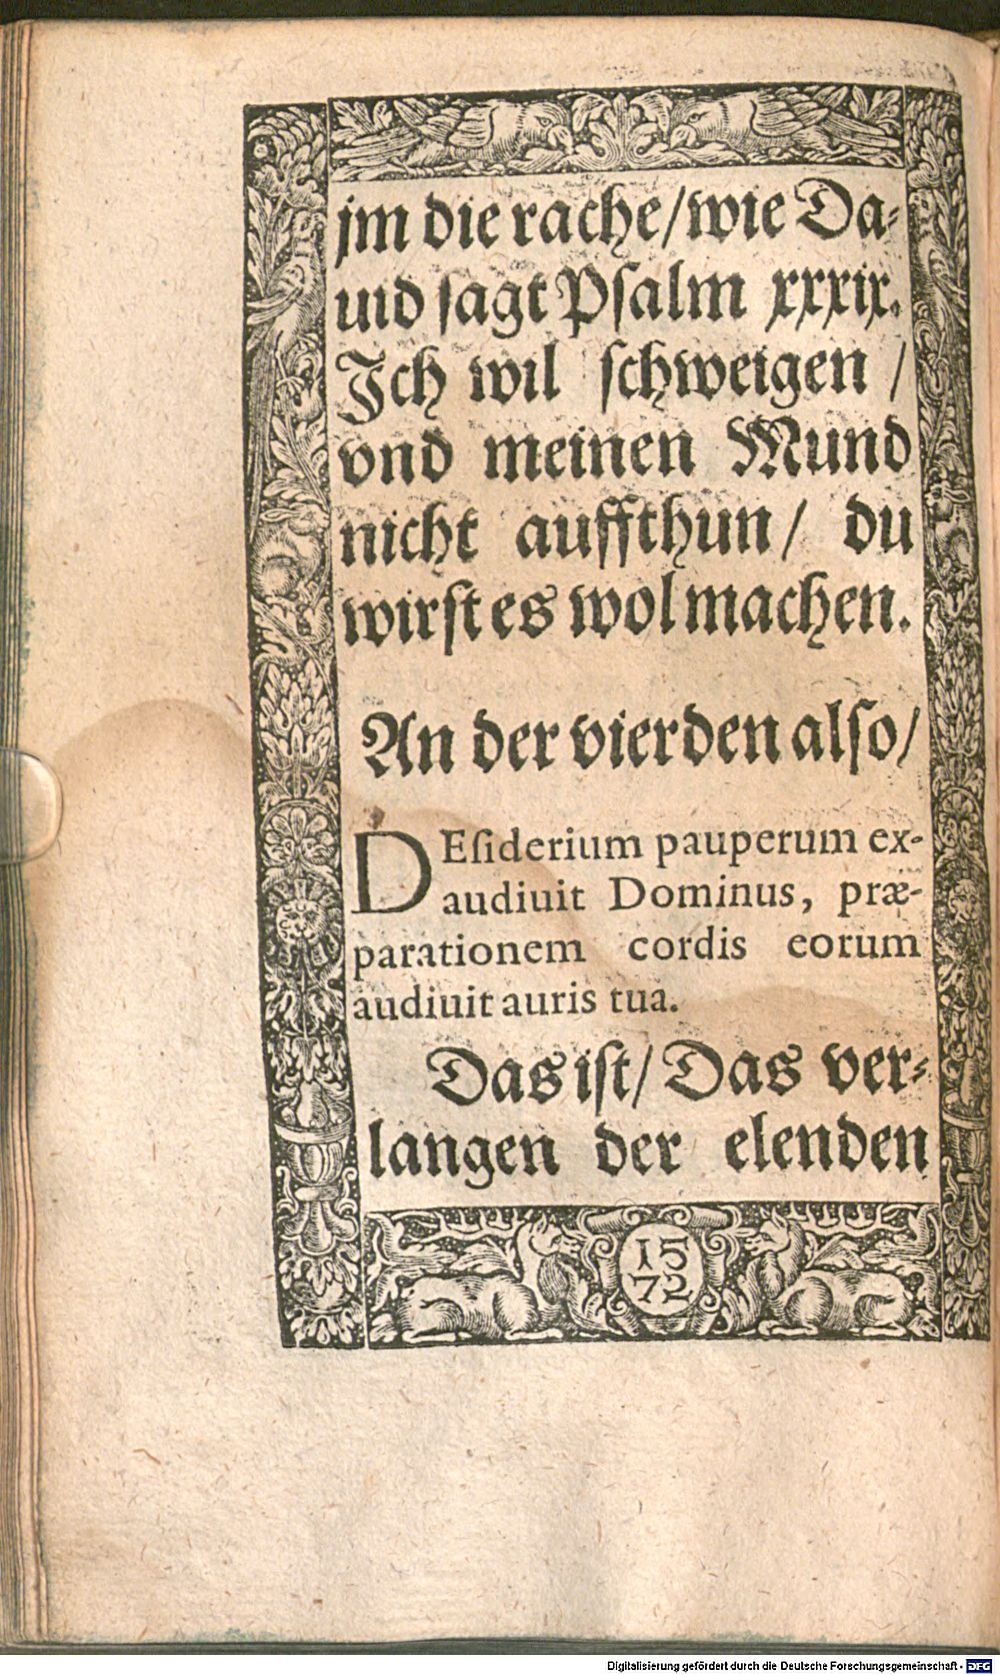 jm die rache/wie Da⸗
uid ſagt Pſalm xxxix.
Ich wil ſchweigen /
vnd meinen Mund
nicht auffthun/ du
wirſt es wol machen.
An der vierden alſo/
DEſiderium pauperum ex-
audiuit Dominus, præ-
parationem cordis eorum
audiuit auris tua.
Das iſt/ Das ver⸗
langen der elenden
15
72
Digitalisierung gefördert durch die Deutsche Forschungsgemeinschaft - DFG